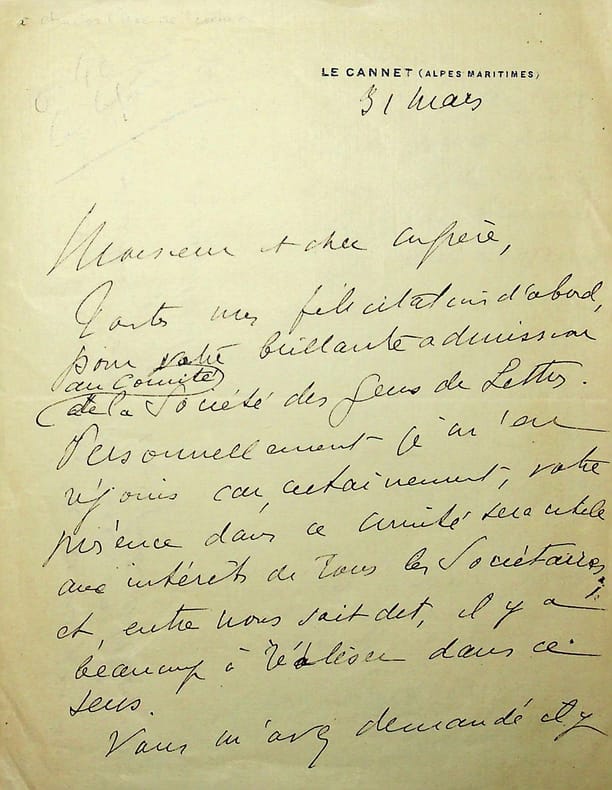 LE CANNET (ALPES MARITIMES)
31 Mars
Monsieur et cher confrère,
Toutes mes félicitations d'abord,
pour votre brillante admission
au Comité
de la Société des Gens de Lettres.
Personnellement je m'en
réjouis car, certainement, votre
présence dans ce comité sera utile
aux intérêts de tous les Sociétaires
et, entre nous soit dit, il y a
beaucoup à réaliser dans ce
sens.
Vous m'avez demandé il y